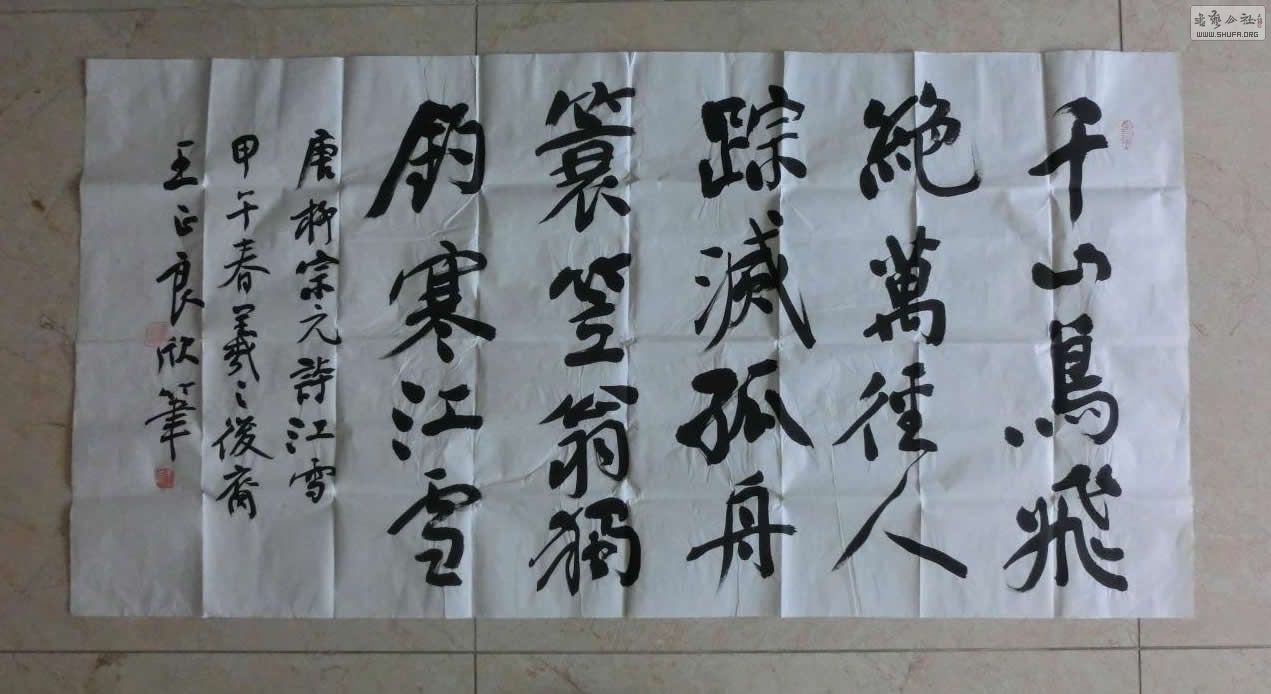 千山鳥飛
絶萬徑人
踪滅孤舟
簑笠翁獨
釣寒江雪
唐柳宗元詩江雪
甲午春羲之後裔
王正良欣筆
书艺公社
WWW.SHUFA.ORG